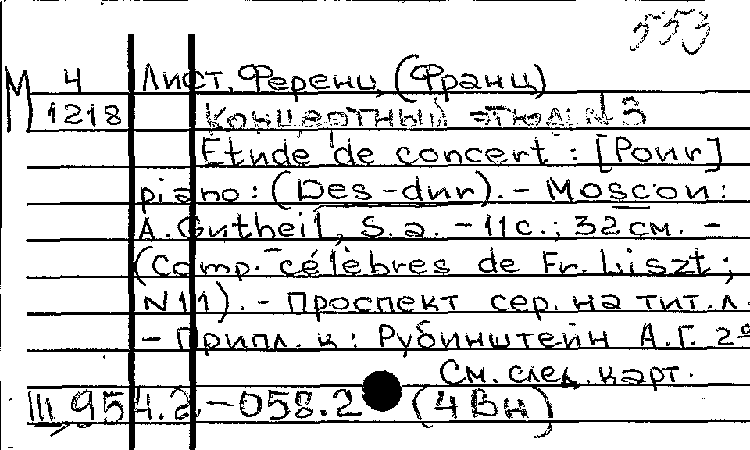 553
М 4 Лист, Ференц (Франц)
1218 Концертный этюд N 3
Etude de concert : [Pour]
piano : (Des-dur). - Moscou :
A. Gutheil, S. a. - 11 с. ; 32 см. -
(Comp. célèbres de Fr. Liszt ;
N 11). - Проспект сер. на тит. л.
- Припл. к : Рубинштейн А. Г. 2e
См. след. карт.
III 954.2-058.2 (4 Вн)